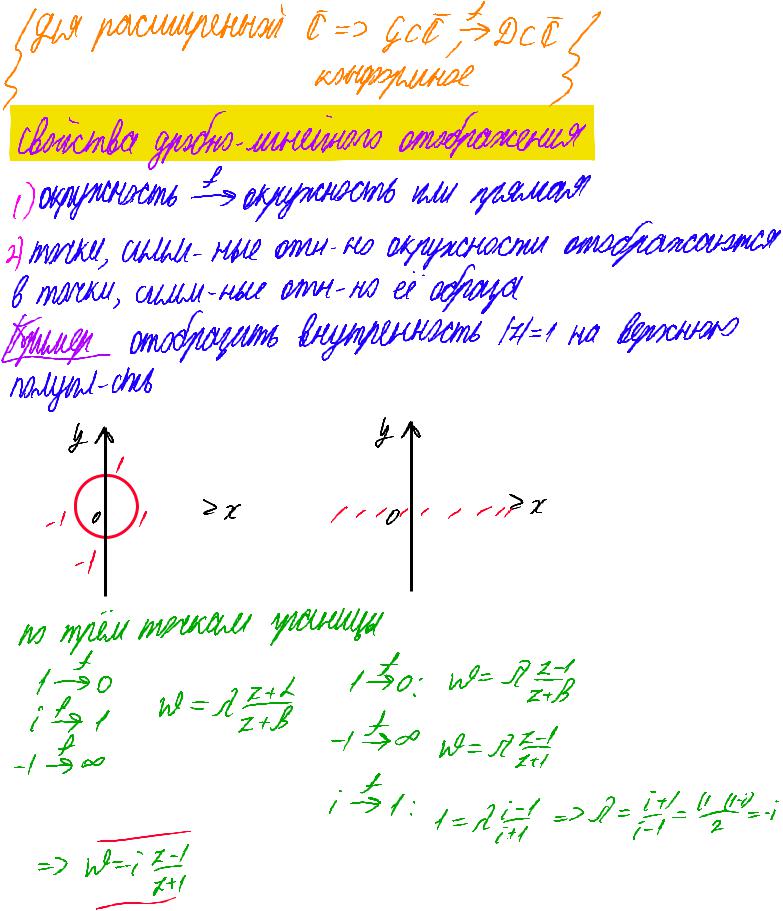 Для расширенной ℂ̅ => G⊂ℂ̅ →f D⊂ℂ̅
конформное
Свойства дробно-линейного отображения
1) окружность →f окружность или прямая
2) точки, симм-ные отн-но окружности отображаются
в точки, симм-ные отн-но её образа
Пример отобразить внутренность |z|=1 на верхнюю
полупл-сть
y y
1
-1 0 1 > x 0 > x
-1
по трём точкам границы
1 →f 0 w = λ (z+α)/(z+β) 1 →f 0: w = λ (z-1)/(z+β)
i →f 1 -1 →f ∞ w = λ (z-1)/(z+1)
-1 →f ∞
i →f 1: 1 = λ (i-1)/(i+1) => λ = (i+1)/(i-1) = /2 = -i
=> w = -i (z-1)/(z+1)